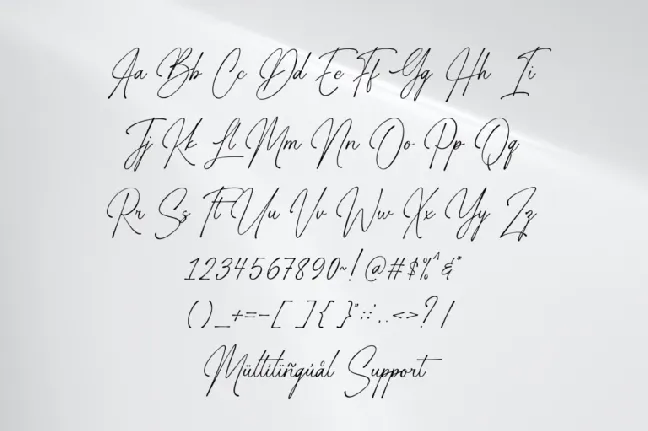 Aa Bb Cc Dd Ee Ff Gg Hh Ii
Jj Kk Ll Mm Nn Oo Pp Qq
Rr Ss Tt Uu Vv Ww Xx Yy Zz
1234567890~!@#$%^&*
()_+=-[ ]{ }";:,.<>?/
Mültilïñgúål Support